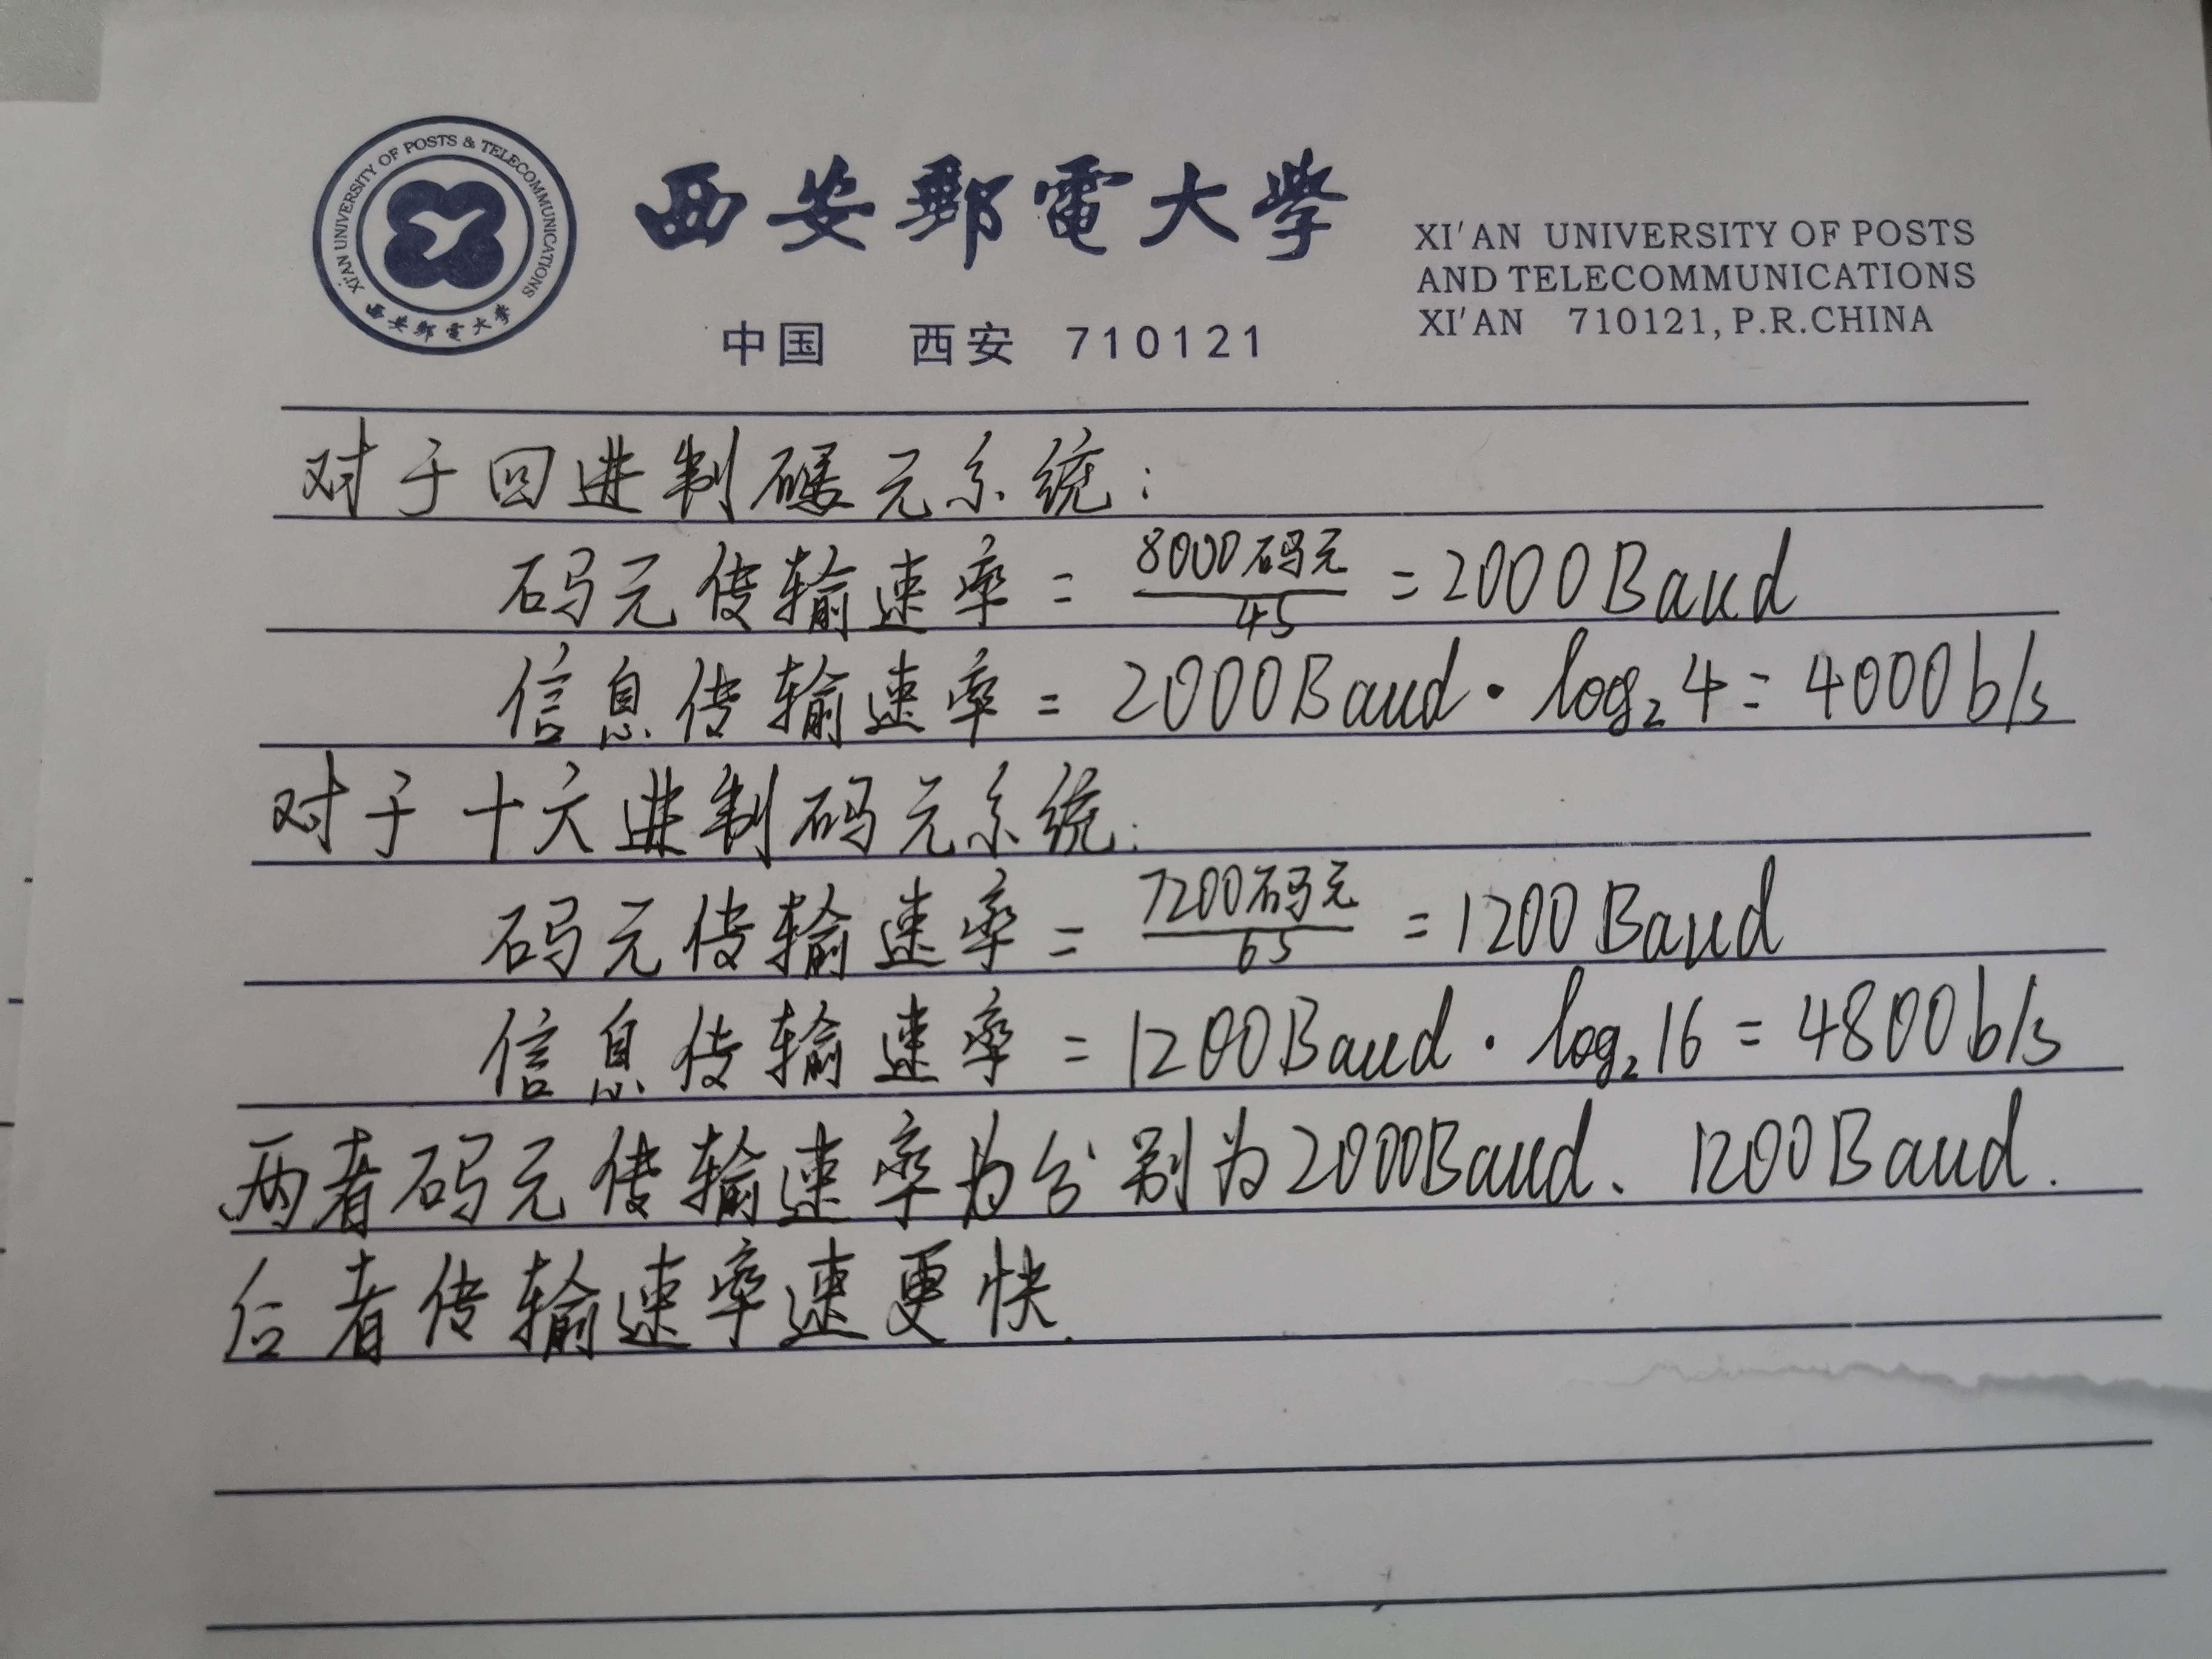 XI'AN UNIVERSITY OF POSTS & TELECOMMUNICATIONS
西安郵電大學
西安郵電大學
中国 西安 710121
XI'AN UNIVERSITY OF POSTS
AND TELECOMMUNICATIONS
XI'AN 710121, P.R.CHINA
对于四进制码元系统：
码元传输速率 = 8000码元/4s = 2000Baud
信息传输速率 = 2000Baud · log₂4 = 4000b/s
对于十六进制码元系统：
码元传输速率 = 7200码元/6s = 1200Baud
信息传输速率 = 1200Baud · log₂16 = 4800b/s
两者码元传输速率为分别为2000Baud、1200Baud.
后者传输速率速更快.